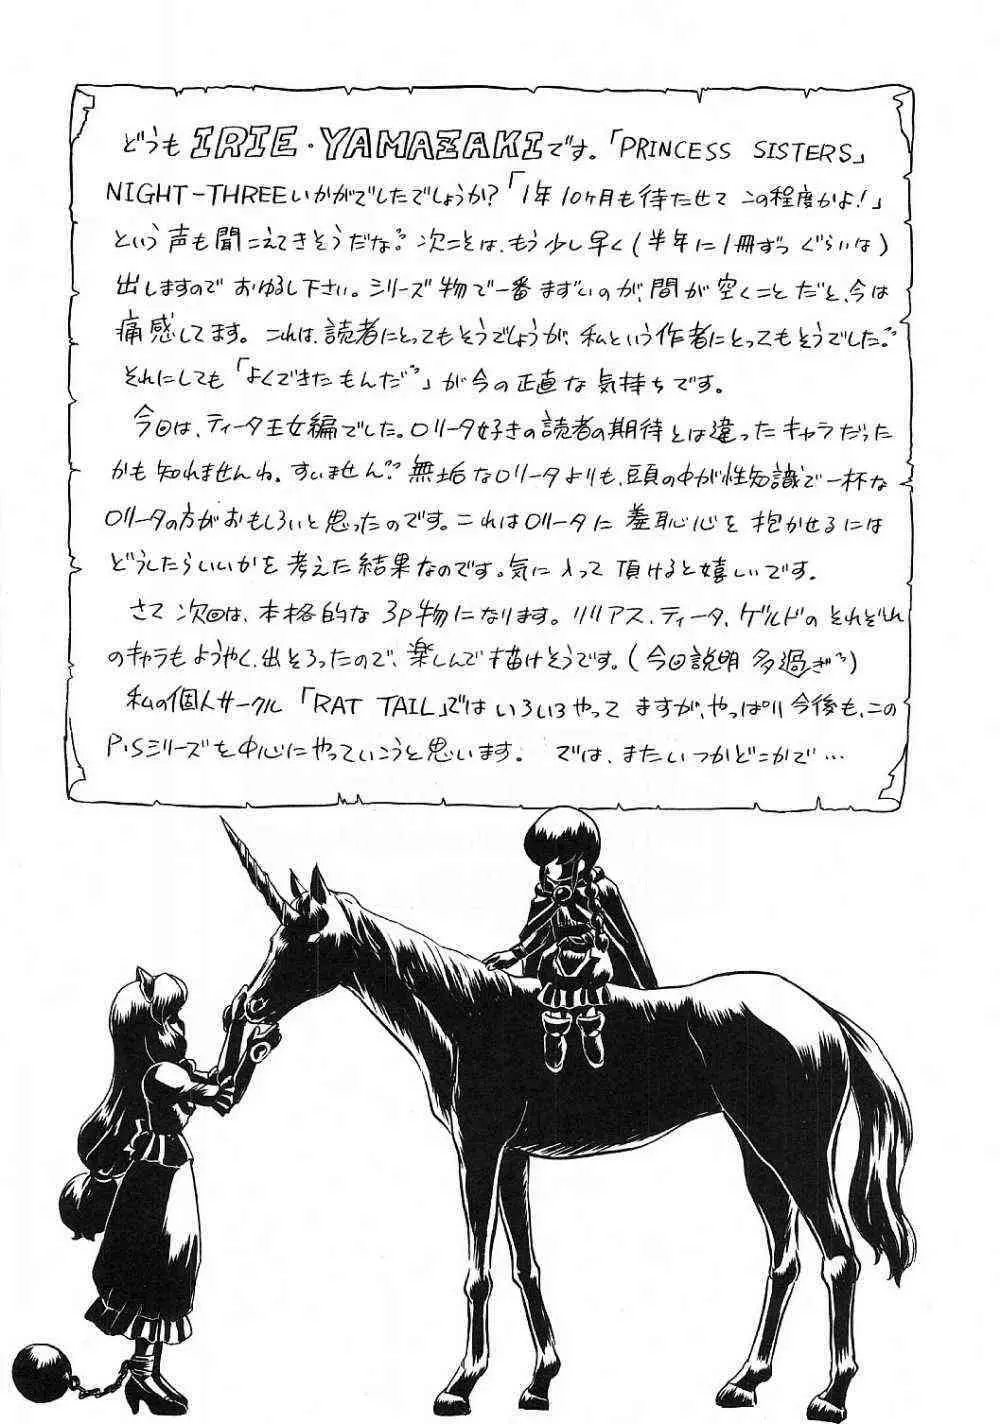 どうもIRIE・YAMAZAKIです。「PRINCESS SISTERS」
NIGHT-THREEいかがでしたでしょうか?「1年10ヶ月も待たせて この程度かよ!」
という声も聞こえてきそうだな。次ことは、もう少し早く(半年に1冊ずつ ぐらいは)
出しますので おゆるし下さい。シリーズ物で一番まずいのが、間が空くことだと、今は
痛感してます。これは、読者にとってもそうでしょうが、私という作者にとってもそうでした。
それにしても「よくできたもんだ」が今の正直な気持ちです。
今回は、ティータ王女編でした。ロリータ好きの読者の期待とは違ったキャラだった
かも知れませんね。すいません。無垢なロリータよりも、頭の中が性知識で一杯な
ロリータの方がおもしろいと思ったのです。これはロリータに羞恥心を抱かせるには
どうしたらいいかを考えた結果なのです。気に入って頂けると嬉しいです。
さて次回は、本格的な3P物になります。リリアス、ティータ、ゲルドのそれぞれ
のキャラもようやく出そろったので、楽しんで描けそうです。(今回説明多過ぎ)
私の個人サークル「RAT TAIL」ではいろいろやってますが、やっぱり今後も、この
P・Sシリーズを中心にやっていこうと思います。 では、またいつかどこかで…